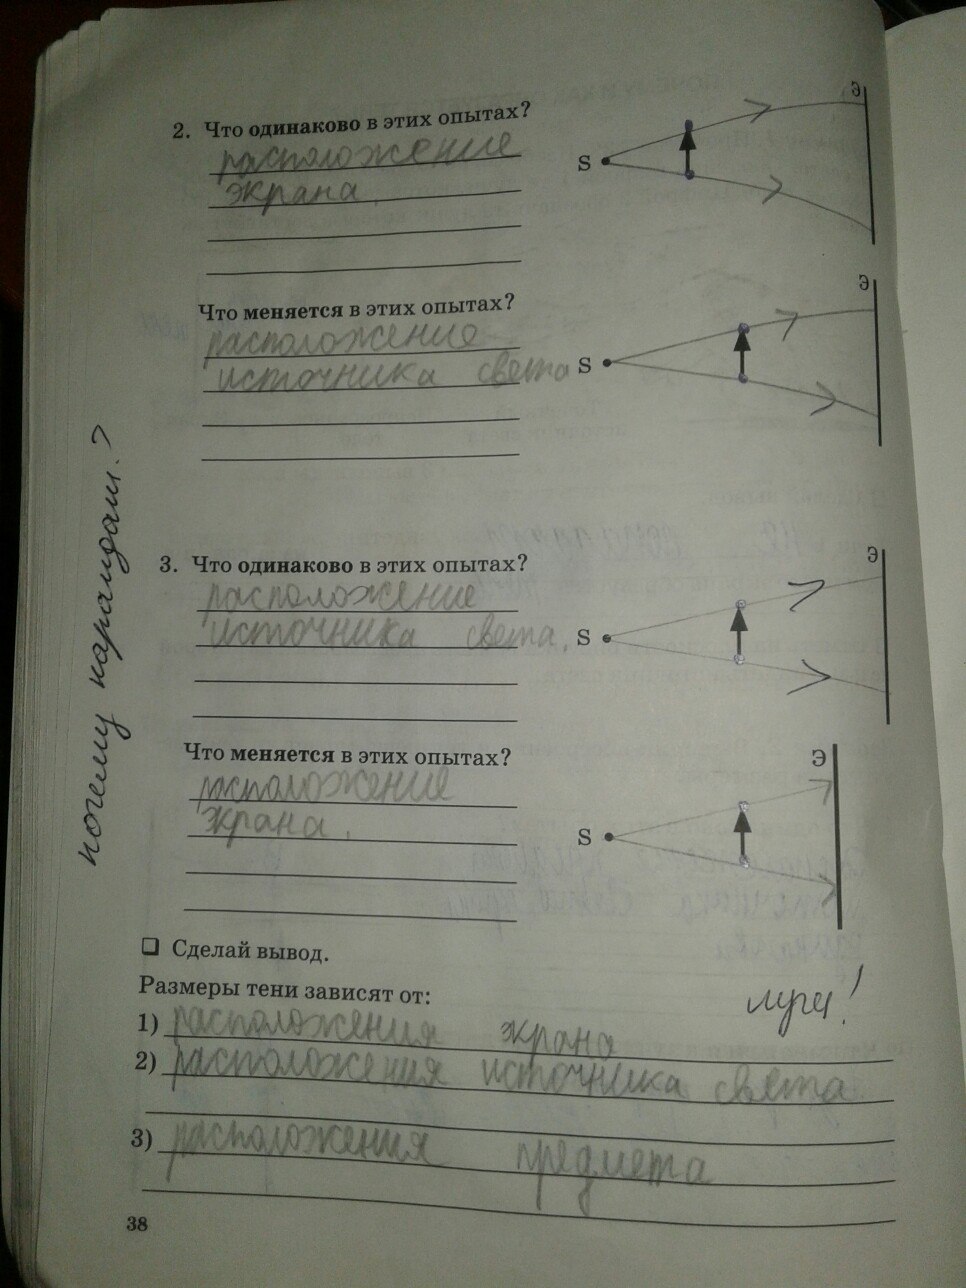 2. Что одинаково в этих опытах?
расположение
экрана.
Э
S
Что меняется в этих опытах?
расположение
источника света
Э
S
почему карандаш?
3. Что одинаково в этих опытах?
расположение
источника света.
Э
S
Что меняется в этих опытах?
расположение
экрана.
Э
S
Сделай вывод.
Размеры тени зависят от:
лучи!
1) расположения экрана
2) расположения источника света
3) расположения предмета
38